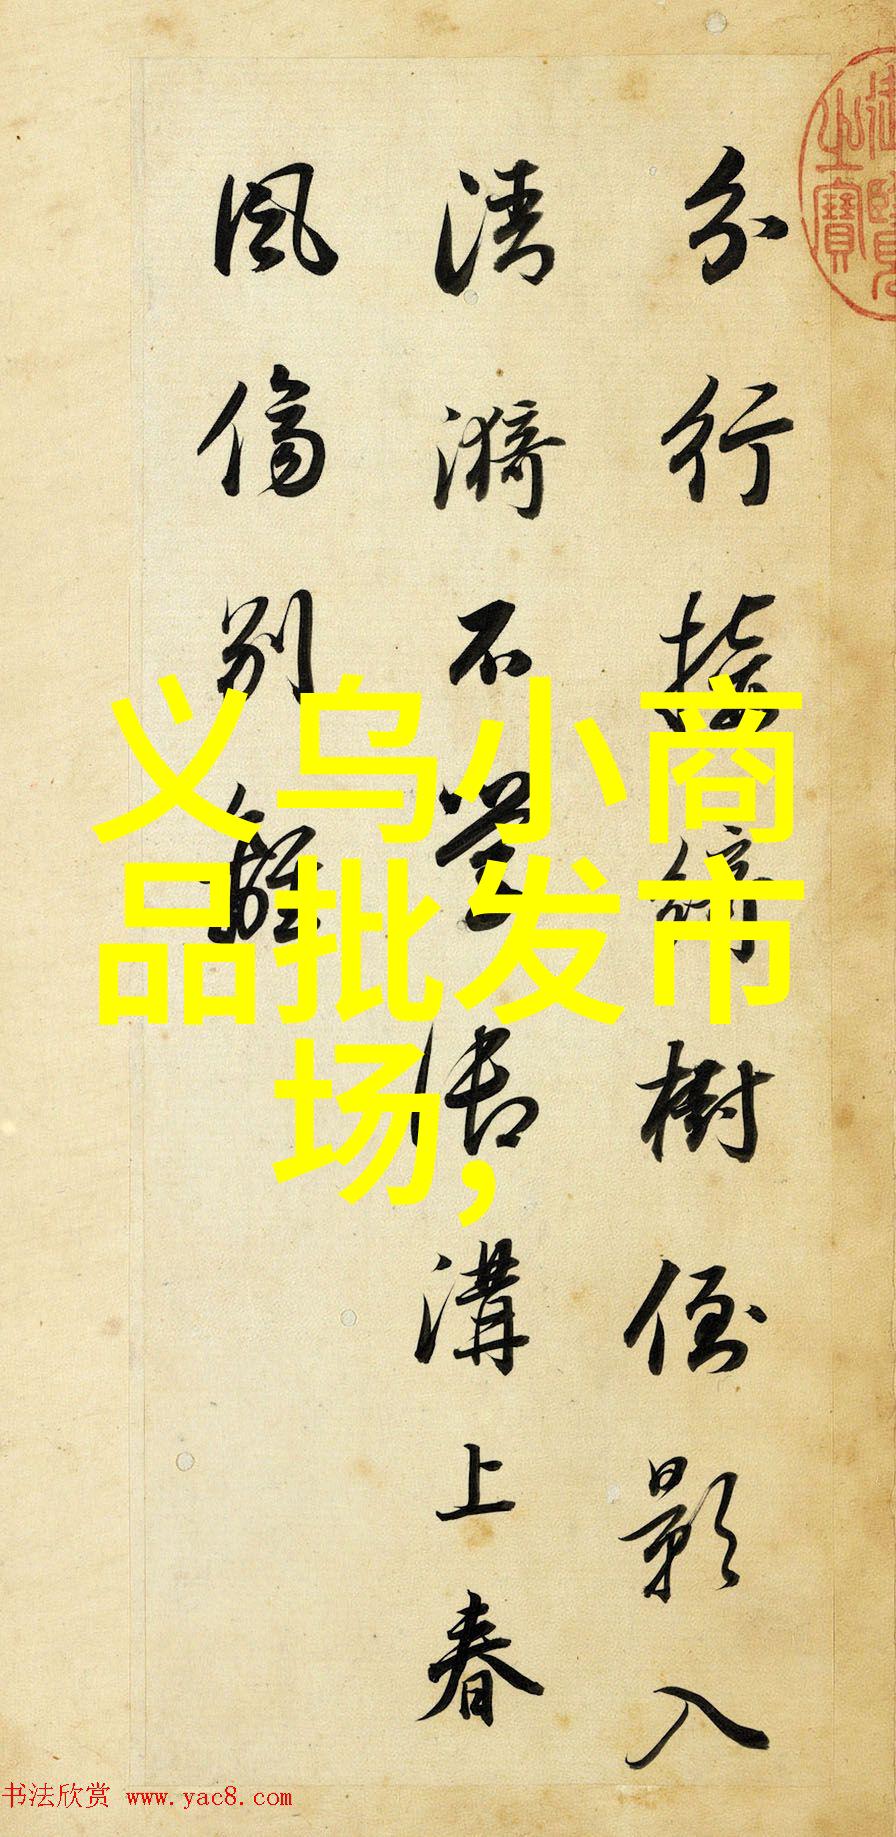 御覽之寶
分行接綺樹倒影入
清漪不學御溝上春
風傷別離
义乌小商
品批发市
场,
书法欣赏 www.yac8.com